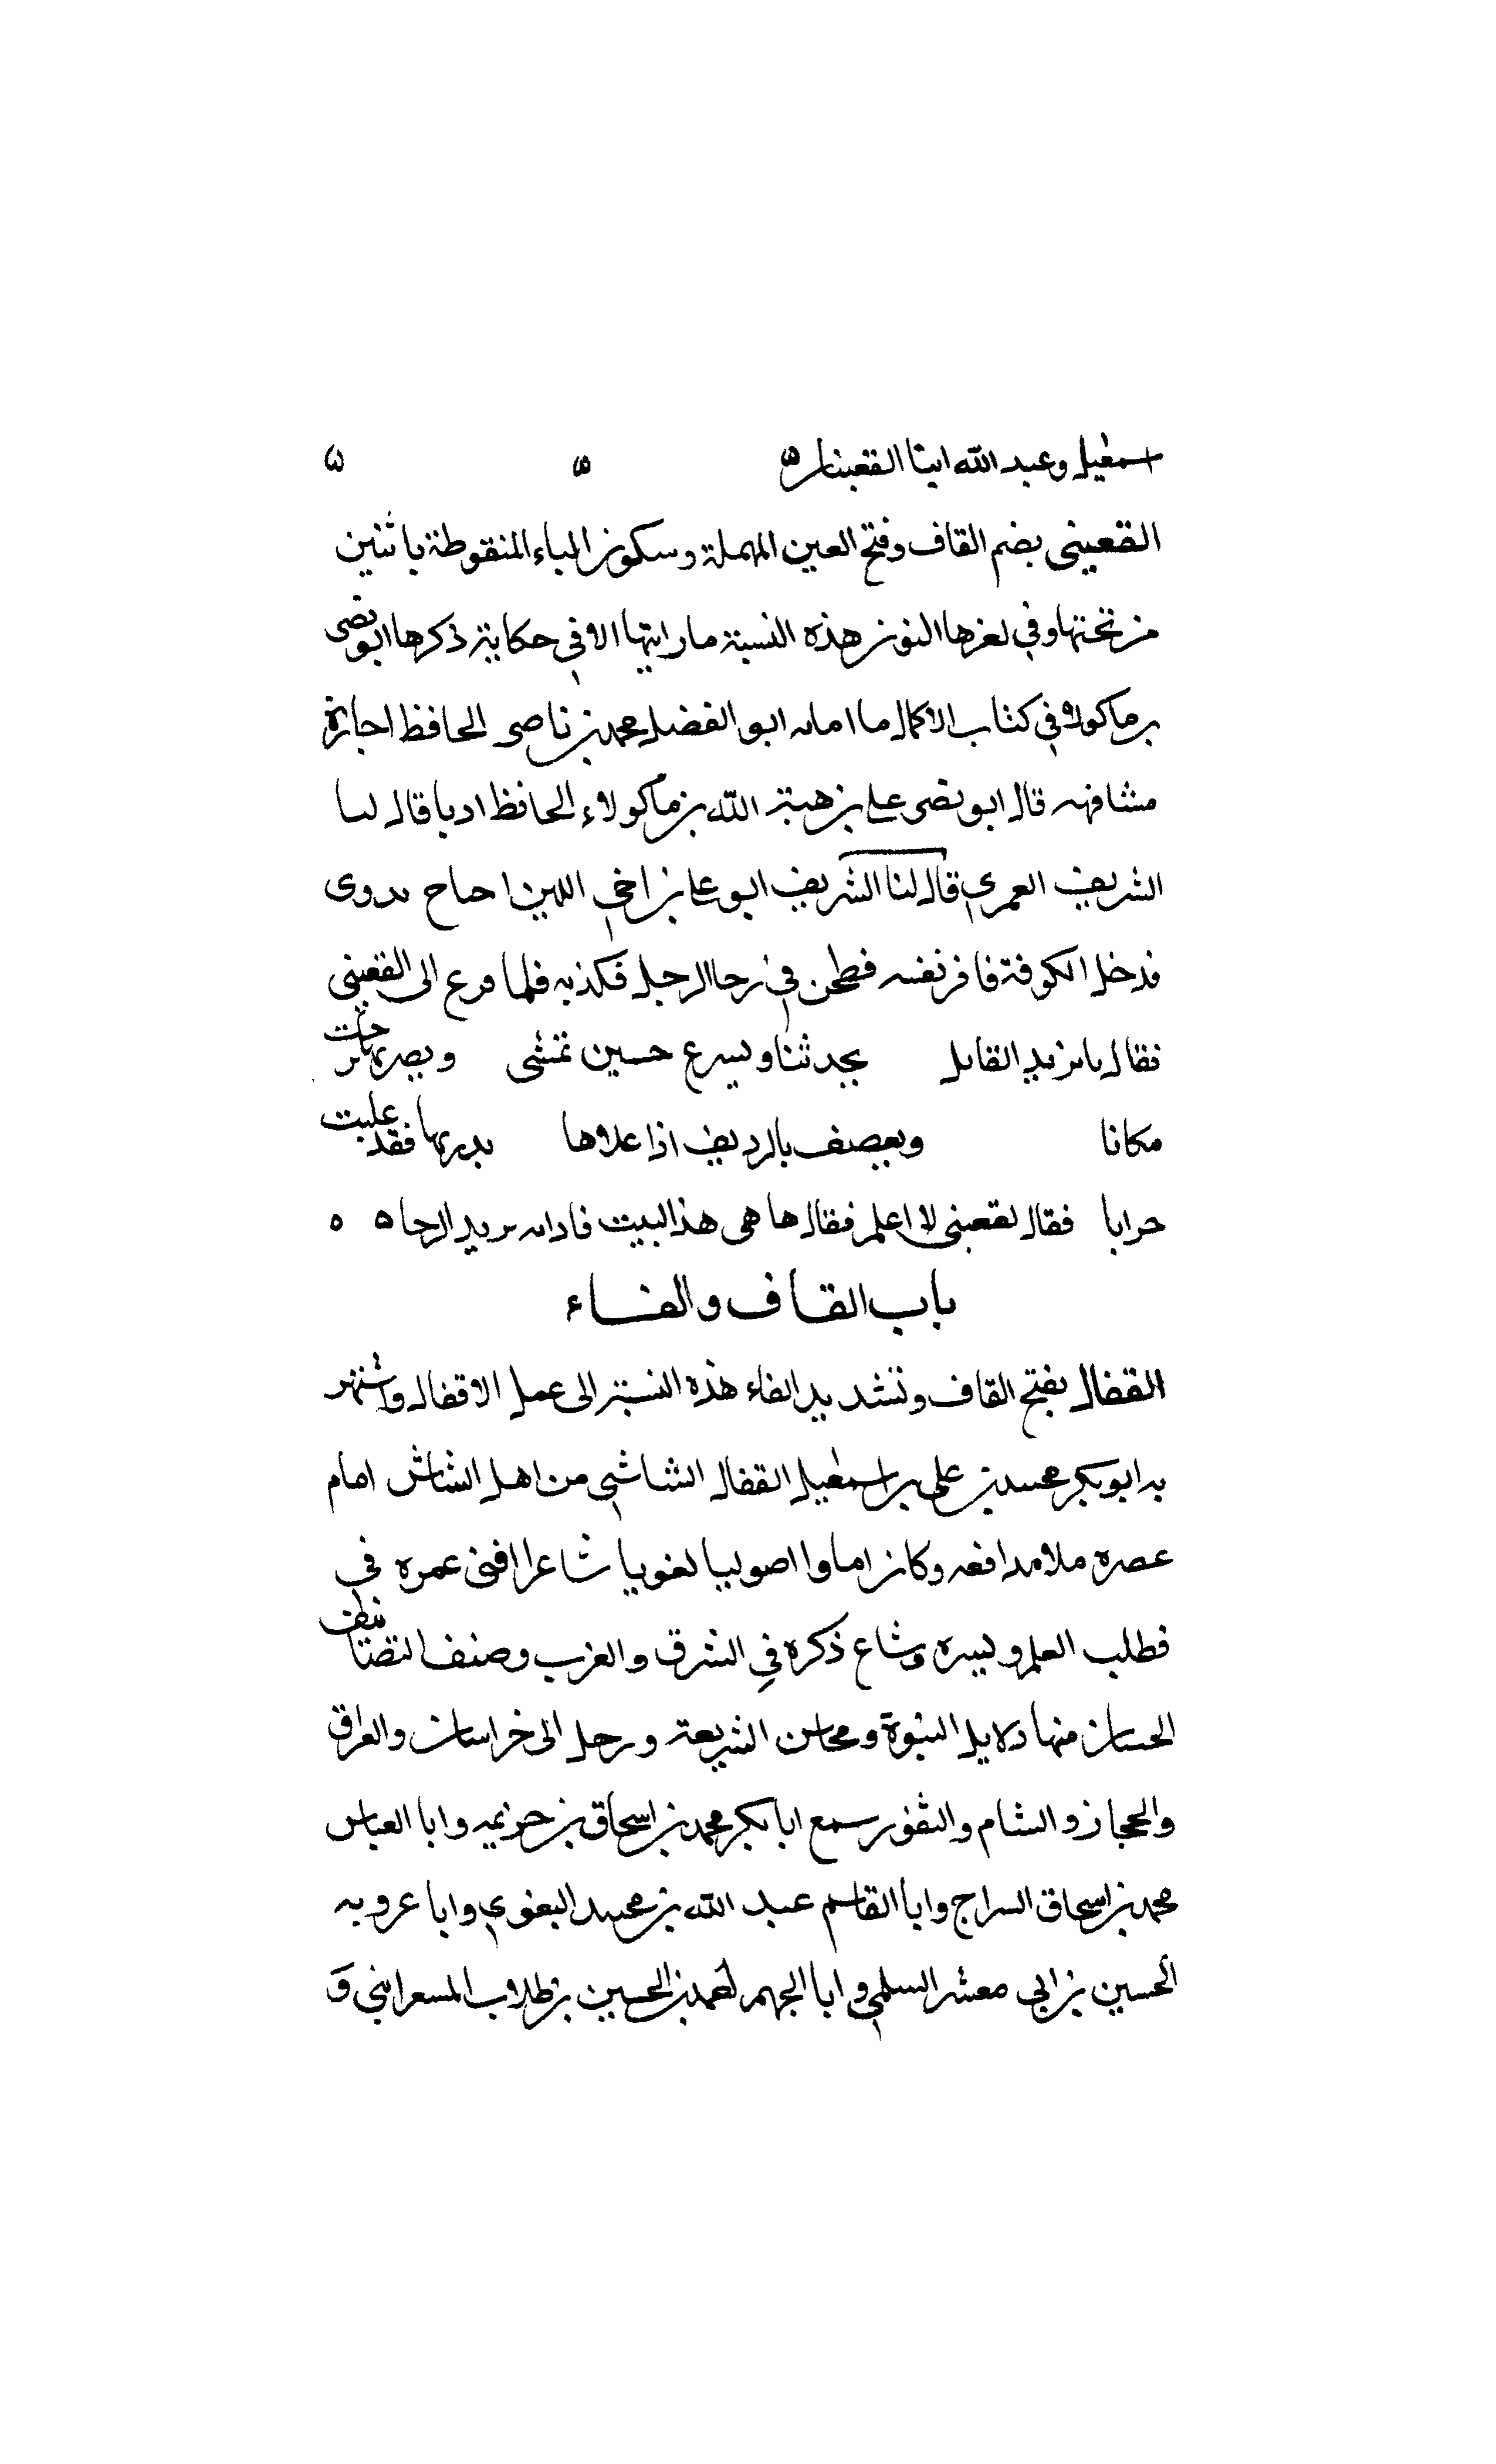 اسمعيل وعبد الله ابنا القعنبيان ه ه ه
القعيني بضم القاف وفتح العين المهملة وسكون الياء المنقوطة باثنين
من تحتها وفي اخرها النون هذه النسبة ما رايتها الا في حكاية ذكرها ابو نصر
بن ماكولا في كتاب الاكمال ابو الفضل محمد بن ناصر الحافظ اجازة
مشافهه قال ابو نصر علي بن هبة الله بن ماكولاء الحافظ قال لنا
الشريف العمري قال لنا الشريف ابو علي بن اخي بدوي
فدخل الكوفة نفسه فطحن في رحا الرجل الى القعيني
فقال يحدثنا ويسرع حسين تمشي
مكانا ويعصف بالرديف اذا علاها فقد
خرابا فقال لقعيني لا اعلم فقال ها هي هذا البيت يريد الرحا ه ه
باب القاف والفاء
القفال بفتح القاف وتشديد الفاء هذه النسبة الى عمل الاقفال واشتهر
به ابو بكر محمد بن علي بن اسمعيل القفال الشاشي من اهل الشاش امام
عصره بلا مدافعه وكان اماما اصوليا لغويا شاعرا افنى عمره في
فطلب العلم وشاع ذكره في الشرق والغرب وصنف التصانيف
الحسان منها دلايل النبوة ومحاسن الشريعة ورحل الى خراسان والعراق
والحجاز والشام والثغور سمع ابا بكر محمد بن اسحاق بن خزيمه وابا العباس
محمد بن اسحاق السراج وابا القاسم عبد الله بن محمد البغوي وابا عروبه
الحسين بن ابي معشر السلمي وابا الجهم احمد بن الحسين بن طلاب و